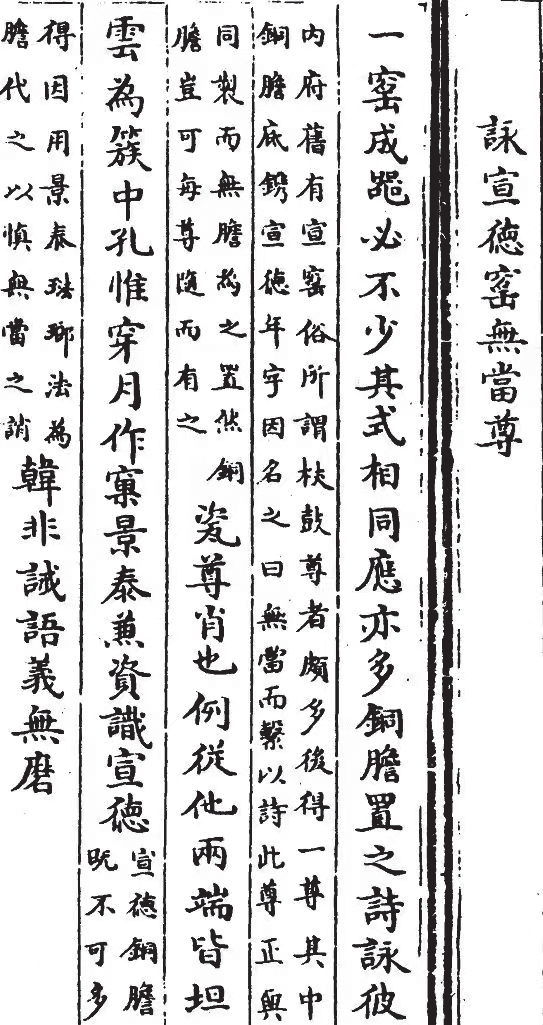 詠宣徳窑無當尊
一窑成器必不少其式相同應亦多銅膽置之詩詠彼
内府舊有宣窑俗所謂杖鼓尊者頗多後得一尊其中
銅膽底鐫宣徳年字因名之曰無當而繫以詩此尊正與
同製而無膽為之置然銅
膽豈可每尊隨而有之
瓷尊肖也例従他兩端皆坦
雲為簇中孔惟穿月作窠景泰兼資識宣徳
宣徳銅膽
既不可多
得因用景泰琺瑯法為
膽代之以慎無當之誚
韓非誡語義無磨